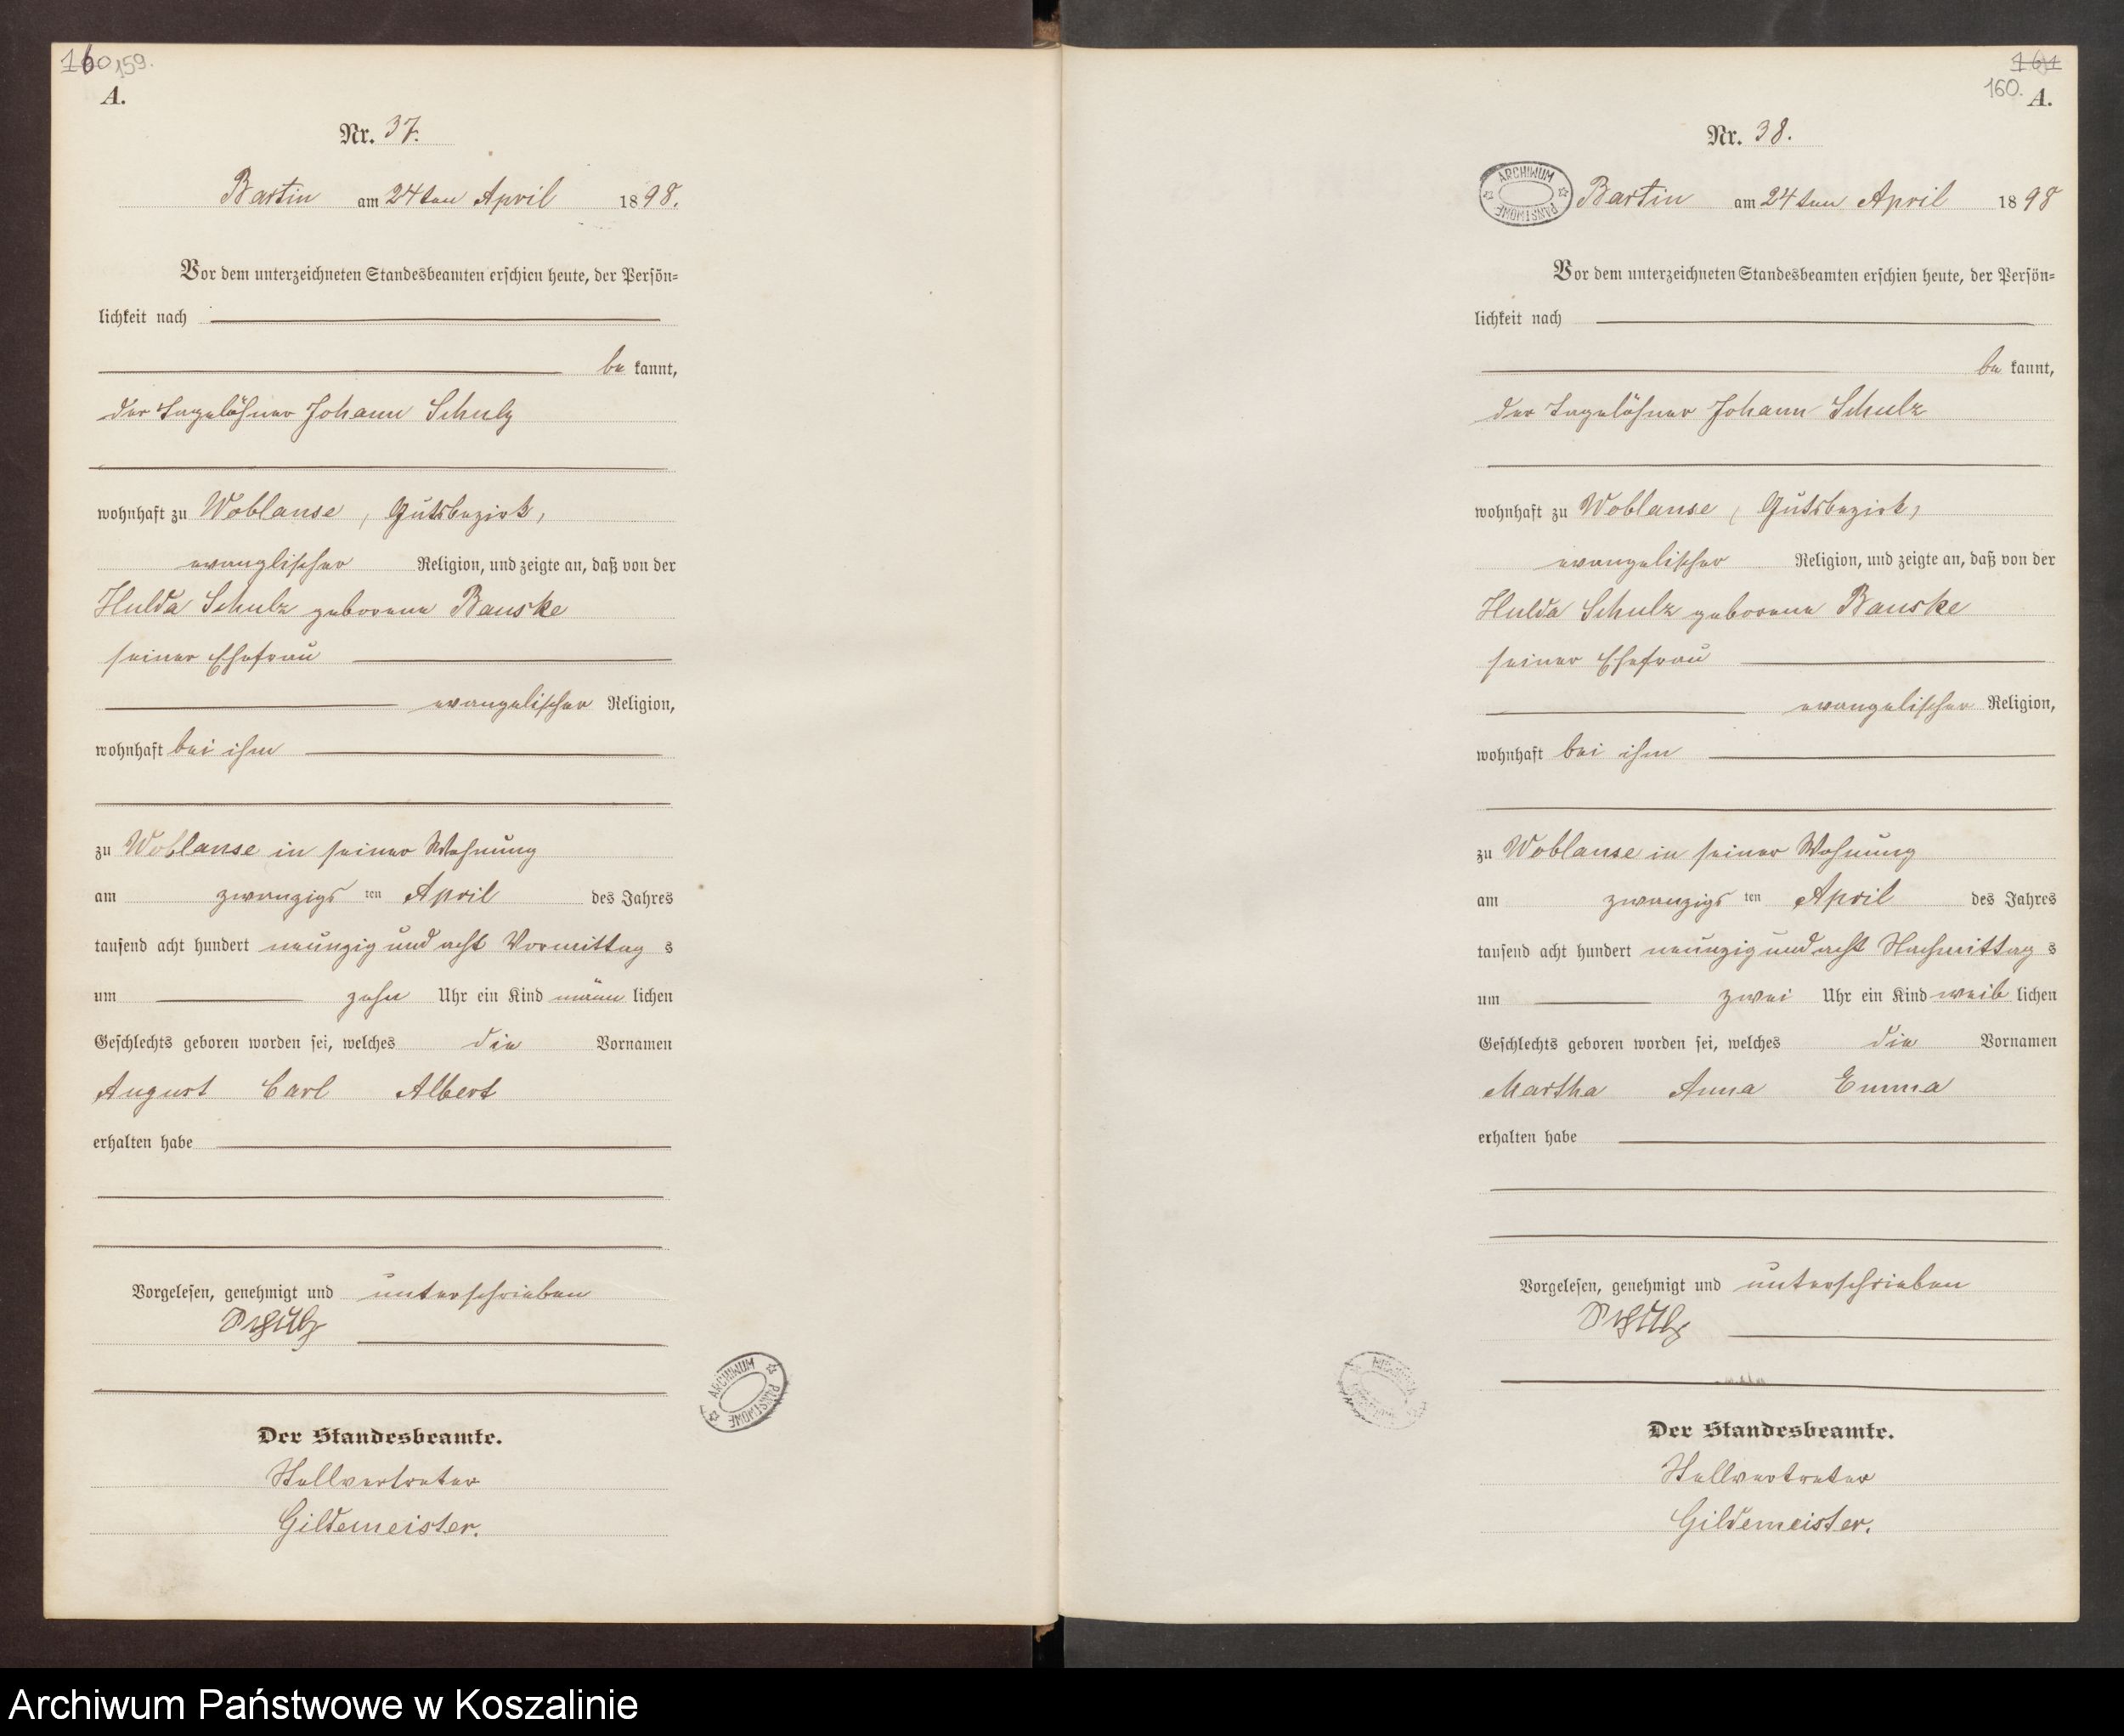 160 159.
A.
Nr. 37.
Bartin am 24ten April 1898.
Vor dem unterzeichneten Standesbeamten erschien heute, der Persön=
lichkeit nach
be kannt,
der Tagelöhner Johann Schulz
wohnhaft zu Woblanse, Gutsbezirk,
evanglischer Religion, und zeigte an, daß von der
Hulda Schulz geborene Banske
seiner Ehefrau
evangelischer Religion,
wohnhaft bei ihm
zu Woblanse in seiner Wohnung
am zwanzigs ten April des Jahres
tausend acht hundert neunzig und acht Vormittag s
um zehn Uhr ein Kind männ lichen
Geschlechts geboren worden sei, welches die Vornamen
August Carl Albert
erhalten habe
Vorgelesen, genehmigt und unterschrieben
Schulz
ARCHIWUM PAŃSTWOWE
Der Standesbeamte.
Stellvertreter
Gildemeister.
161
160. A.
Nr. 38.
ARCHIWUM PAŃSTWOWE
Bartin am 24ten April 1898
Vor dem unterzeichneten Standesbeamten erschien heute, der Persön=
lichkeit nach
be kannt,
der Tagelöhner Johann Schulz
wohnhaft zu Woblanse, Gutsbezirk,
evangelischer Religion, und zeigte an, daß von der
Hulda Schulz geborene Banske
seiner Ehefrau
evangelischer Religion,
wohnhaft bei ihm
zu Woblanse in seiner Wohnung
am zwanzigs ten April des Jahres
tausend acht hundert neunzig und acht Nachmittag s
um zwei Uhr ein Kind weib lichen
Geschlechts geboren worden sei, welches die Vornamen
Martha Anna Emma
erhalten habe
Vorgelesen, genehmigt und unterschrieben
Schulz
Der Standesbeamte.
Stellvertreter
Gildemeister.
Archiwum Państwowe w Koszalinie